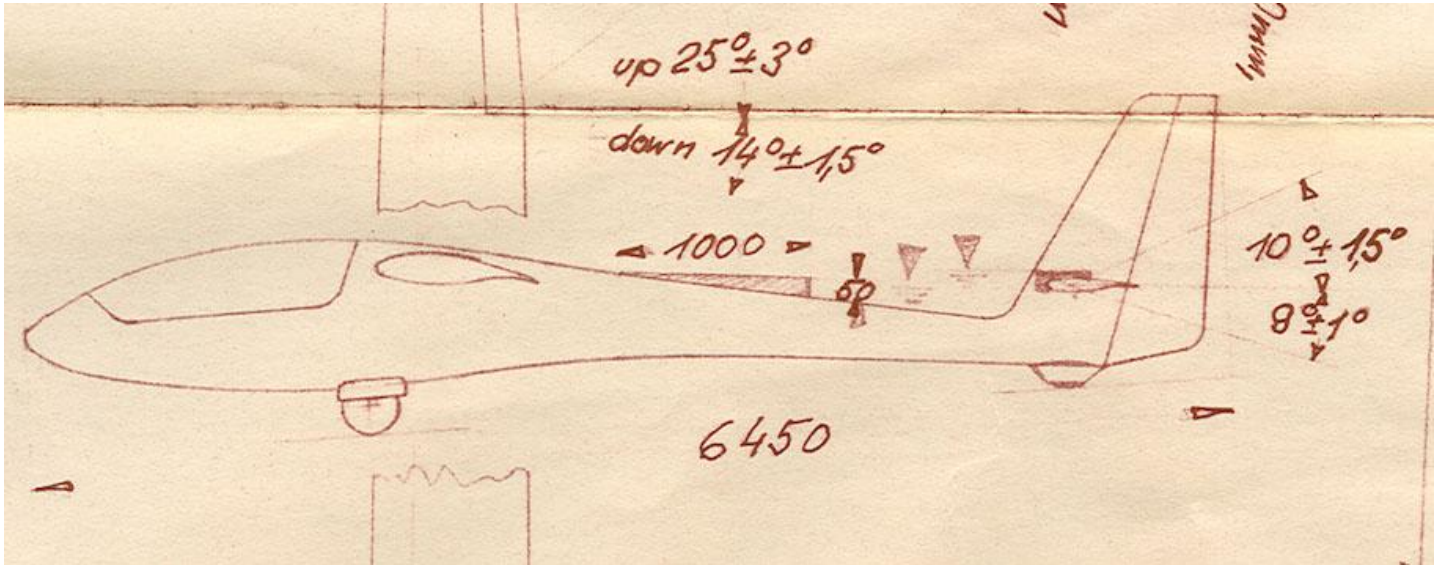 up 25°±3°
down 14°±1,5°
1000
50
10°±1,5°
8°±1°
6450